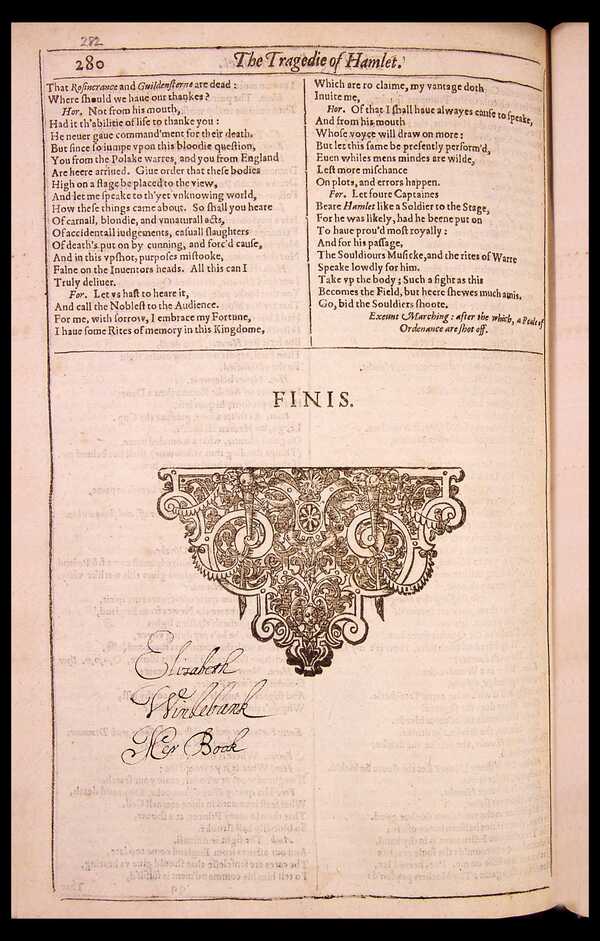 282
280
The Tragedie of Hamlet.
That Rosincrance and Guildensterne are dead :
Where ſhould we haue our thankes ?
Hor. Not from his mouth,
Had it th'abilitie of life to thanke you :
He neuer gaue command'ment for their death.
But ſince ſo iumpe vpon this bloodie queſtion,
You from the Polake warres, and you from England
Are heere arriued. Giue order that theſe bodies
High on a ſtage be placed to the view,
And let me ſpeake to th'yet vnknowing world,
How theſe things came about. So ſhall you heare
Of carnall, bloudie, and vnnaturall acts,
Of accidentall iudgements, caſuall ſlaughters
Of death's put on by cunning, and forc'd cauſe,
And in this vpſhot, purpoſes miſtooke,
Falne on the Inuentors heads. All this can I
Truly deliuer.
For. Let vs haſt to heare it,
And call the Nobleſt to the Audience.
For me, with ſorrow, I embrace my Fortune,
I haue ſome Rites of memory in this Kingdome,
Which are ro claime, my vantage doth
Inuite me,
Hor. Of that I ſhall haue alwayes cauſe to ſpeake,
And from his mouth
Whoſe voyce will draw on more :
But let this ſame be preſently perform'd,
Euen whiles mens mindes are wilde,
Leſt more miſchance
On plots, and errors happen.
For. Let foure Captaines
Beare Hamlet like a Soldier to the Stage,
For he was likely, had he beene put on
To haue prou'd moſt royally :
And for his paſſage,
The Souldiours Muſicke, and the rites of Warre
Speake lowdly for him.
Take vp the body ; Such a ſight as this
Becomes the Field, but heere ſhewes much amis.
Go, bid the Souldiers ſhoote.
Exeunt Marching : after the which, a Peale of
Ordenance are ſhot off.
FINIS.
Elizabeth
Windebank
Her Book